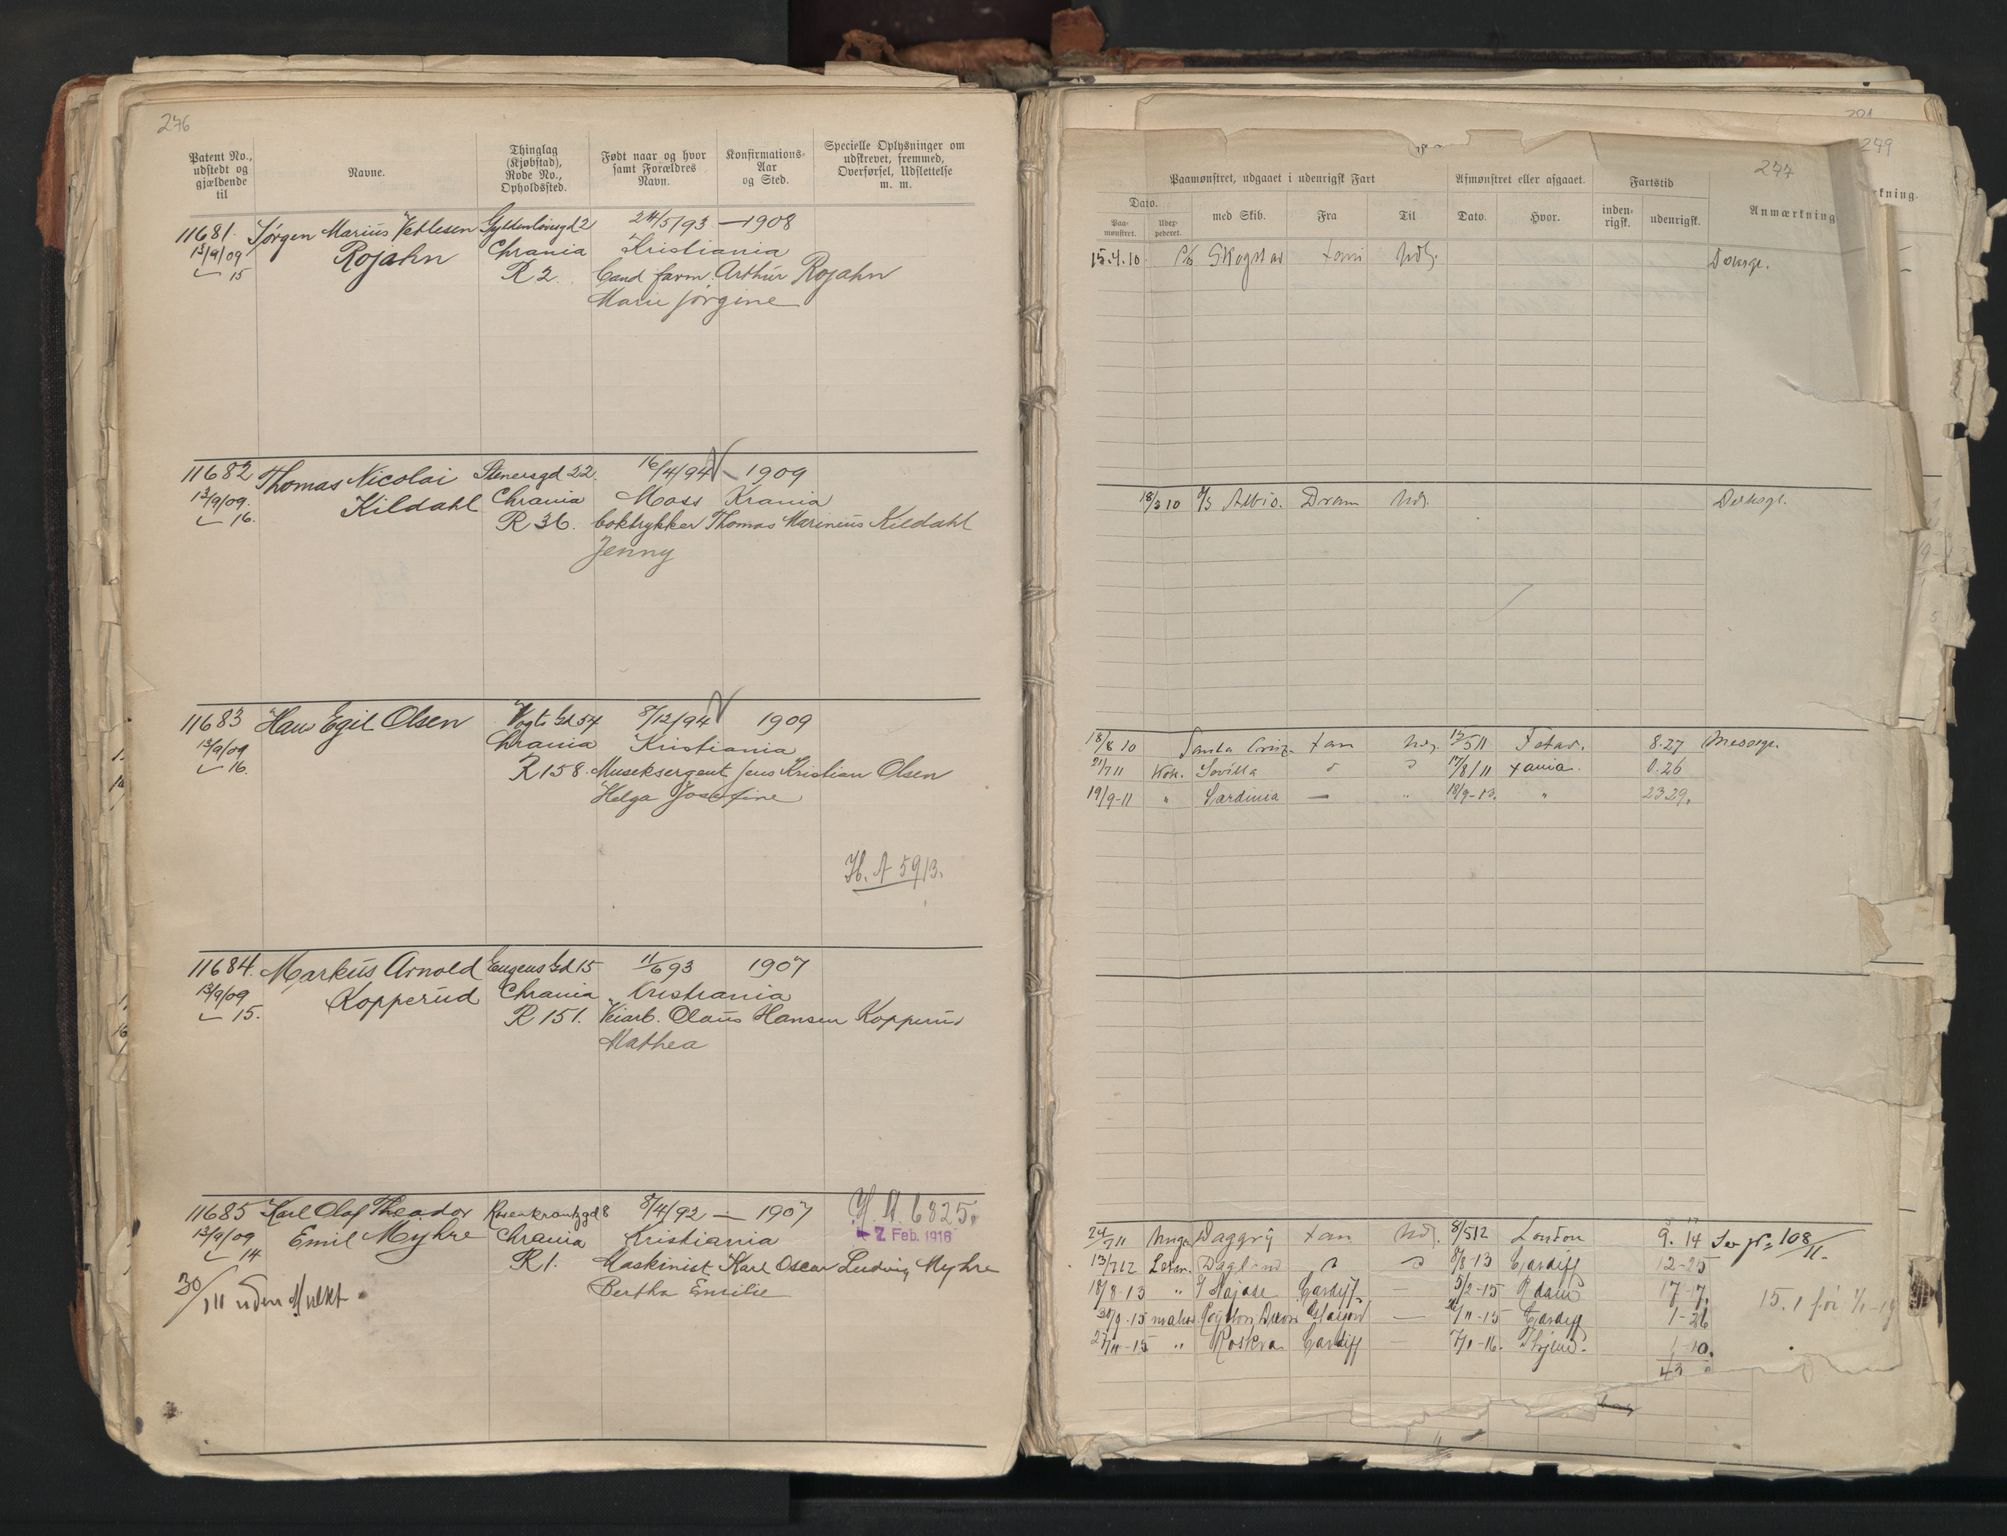 276
Patent No., udstedt og gjældende til
Navne.
Thinglag (Kjøbstad), Rode No., Opholdssted.
Født naar og hvor samt Forældres Navn.
Konfirmations- Aar og Sted.
Specielle Oplysninger om udskrevet, fremmed, Overførsel, Udslettelse m. m.
11681. Jørgen Marius Vetlesen Gyldenløvesgd 2 24/5/93 — 1908
13/9/09 Rojahn Chrania Kristiania
15 R 2. Cand farm Arthur Rojahn
Marie Jørgine
11682 Thomas Nicolai Stenersgd 22. 16/4/94 1909
13/9/09. Kildahl Chrania Moss Krania
16. R 36. boktrykker Thomas Marinius Kildahl
Jenny
11683 Hans Egil Olsen Vogts Gd 54 8/12/94 1909
13/9/09 Chrania Kristiania
16. R 158. Museksergeant Jens Kristian Olsen
Helga Josefine
H. A 5913.
11684. Markus Arnold Eugens Gd 15 11/6 93 1907
13/9/09 Kopperud Chrania Kristiania
15. R 151. Veiarb. Olaus Hansen Kopperud
Mathea
11685 Karl Olaf Theodor Rosenkrantzgd 8 8/4/92 — 1907 H. A. 6825.
13/9/09 Emil Myhre Chrania Kristiania 7 Feb. 1916
14 R 1. Maskinist Karl Oscar Ludvig Myhre
30/111 uden Mulkt. Bertha Emilie
279
277
Paamønstret, udgaaet i udenrigsk Fart
Afmønstret eller afgaaet.
Fartstid
Anmærkning
Dato.
Paa- mønstret.
Udex- pederet.
med Skib.
Fra
Til
Dato.
Hvor.
inden- rigsk.
udenrigsk.
15.4.10 Skogstad Xani Udl. Dæksgt.
18/3 10 Albis. Dram Udl. Dæksgt.
18/8 10 Santa Cruz Xan Udl. 15/5 11 8.27 Messegt.
21/7 11 Kok. Sevilla 17/8/11 Xania. 0.26
19/9-11 " Sardinia — " 18/9-13. " 23 29.
24/7 11 Daggry Xan Udl. 8/5 12 London 9. 14 Se pr. 108/11.
13/7 12 Dagland 8/8-13 Cardiff 12-25
18/8-13 " Cardiff — 5/2-15 Rdam 17-17. 15. 1 for 1/1-19
30/9-15 — 11-15 Cardiff 1-26
27/11-15 " Roskva Cardiff — 7/1-16. 1-10.
43